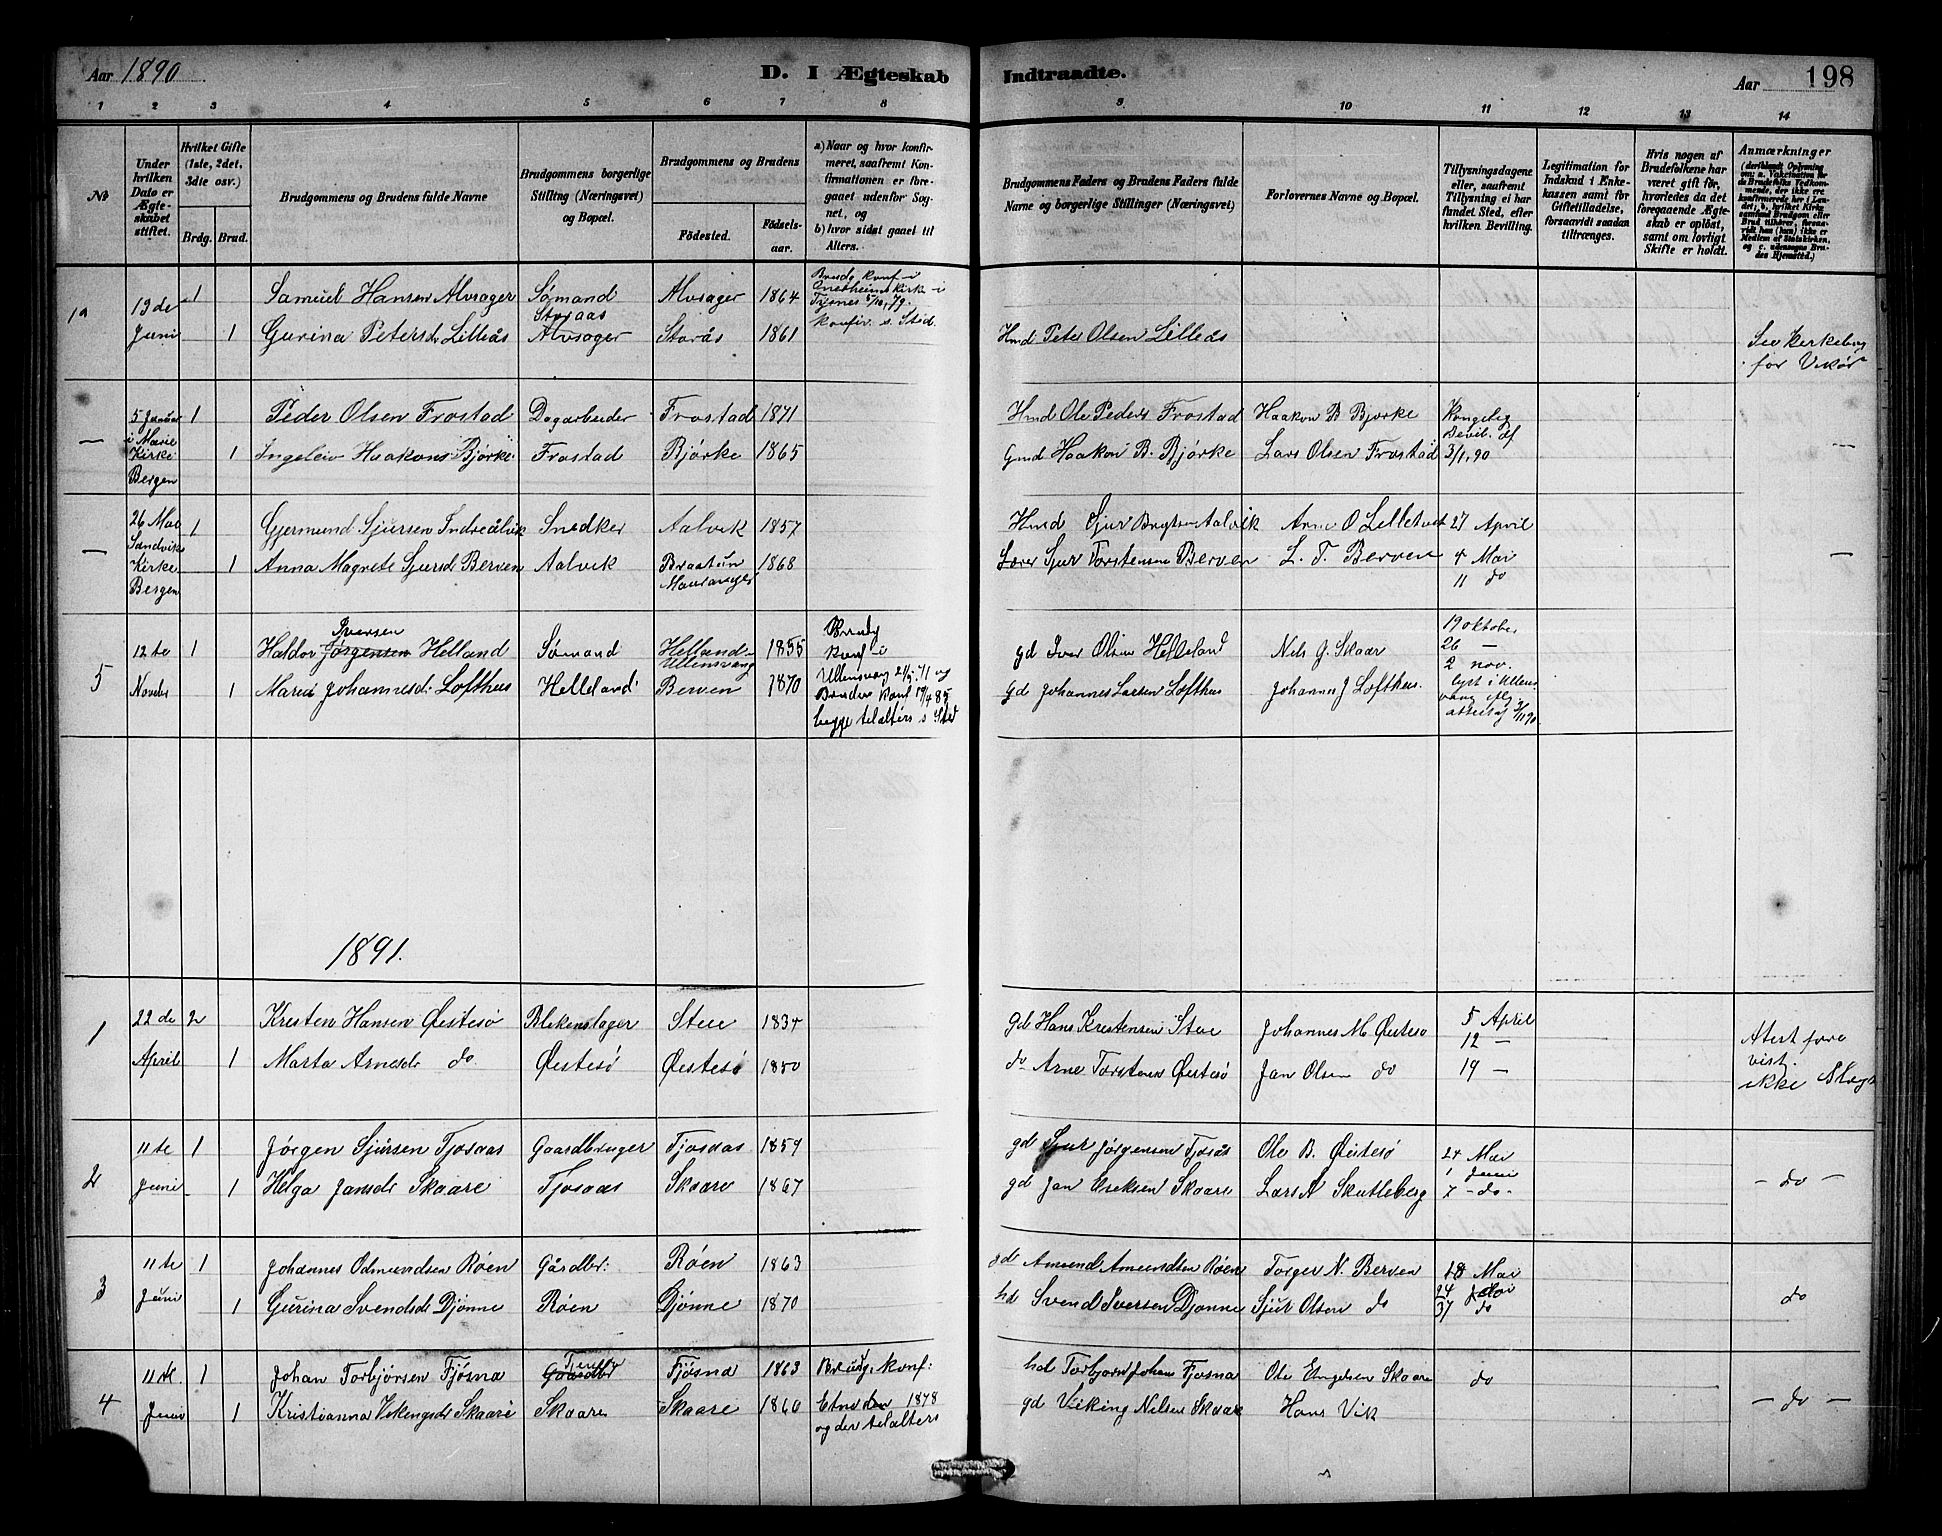 Aar 1890
D. I Ægteskab
Indtraadte.
Aar
198
1 2 3 4 5 6 7 8 9 10 11 12 13 14
No
Under hvilken Dato er Ægteskabet stiftet.
Hvilket Gifte (1ste, 2det, 3die osv.)
Brdg. Brud.
Brudgommens og Brudens fulde Navne
Brudgommens borgerlige Stilling (Næringsvei) og Bopæl.
Brudgommens og Brudens
Fødested.
Fødselsaar.
a) Naar og hvor konfirmeret, saafremt Konfirmationen er foregaaet udenfor Sognet, og
b) hvor sidst gaaet til Alters.
Brudgommens Faders og Brudens Faders fulde Navne og borgerlige Stillinger (Næringsvei)
Forlovernes Navne og Bopæl.
Tillysningsdagene eller, saafremt Tillysning ei har fundet Sted, efter hvilken Bevilling.
Legitimation for Indskud i Enkekassen samt for Giftetilladelse, forsaavidt saadan tiltrænges.
Hvis nogen af Brudefolkene har været gift før, hvorledes da det foregaaende Ægteskab er opløst, samt om lovligt Skifte er holdt.
Anmærkninger
13de 1 Samuel Hansen Alvsager Sømand Alvsager 1864 Brudg konf i
kirke i
Tysnes 5/10, 79.
Storaas
Juni 1 Gurina Petersdr Lilleås Alvsager Storås 1861 konfir. s. Sted. Hmd Peter Olsen Lilleås
See kirkebog
for Vikør
5 Januar 1 Peder Olsen Frostad Dagarbeider Frostad 1871 Hmd Ole Peders Frostad Haakon B Bjørke Kongelig
— i Marie Bevil. af
Kirke 1 Ingeleiv Haakons Bjørke Frostad Bjørke 1865 Gmd Haakon B. Bjørke Lars Olsen Frostad 3/1, 90 —
Bergen
26 Mai 1 Gjermund Sjursen Indreålvik Snedker Aalvik 1857 Hmd Sjur Aalvik Arne O Lilletvet 27 April
— Sandviks
Kirke 1 Anna Magrete Sjursd Berven Aalvik 1868 Lærer Sjur Torstensen Berven L. T. Berven 4 Mai —
Bergen Mauranger 11 do
Iversen
12te 1 Haldor Jørgensen Helland Sømand Helland Ullensvang 1855 Brudg konf i gd Iver Olsen Helleland Nels G. Skaar 19 oktober
26 —
2 nov.
5 Novbr 1 Marie Johannesdr Lofthus Helleland Berven 1870 Ullensvang 71 og
Bruden konf 19/4 85
begge telalters s Sted gd Johannes Larsen Lofthus Johannes J Lofthus. lyst i Ullensvang
attest af
1891.
1 22de 2 Kristen Hansen Østesø Blekenslager Steie 1834 gd Hans Kristensen Steie Johannes M. Østesø 5 April
12 —
April 1 Marta Arnesdr do Østesø Østesø 1850 do Arne Torstens Østesø Jan Olsen do 19 —
Atest fore
vist.
ikke Slægt
2 11te 1 Jørgen Sjursen Tjosaas Gaardbruger Tjosaas 1859 gd Sjur Jørgensen Tjosås Ole B. Østesø 24 Mai
Juni 1 Helga Jansdr Skaare Tjosaas Skaare 1867 gd Jan Ereksen Skaare Lars N Skutleberg 1 Juni
7 - do - — do —
3 11te 1 Johannes Odmundsen Røen Gårdbr: Røen 1863 gd Amund Amundsen Røen Torger N. Berven 18 Mai
Juni 1 Gurina Svendsdr Djønne Røen Djønne 1870 hd Svend Iversen Djønne Sjur Olsen do 24 do
do
4 11te 1 Johan Torbjørsen Fjøsna Gaardbr Fjøsna 1863 Brudg. konf: hd Torbjørn Johans Fjøsna Ole Engelsen Skaare do
Juni 1 Kristianna Vekengsdr Skaare Skaare Skaare 1860 Etne den 1878
og der telalters gd Viking Nilsen Skaar Hans Vik — do —